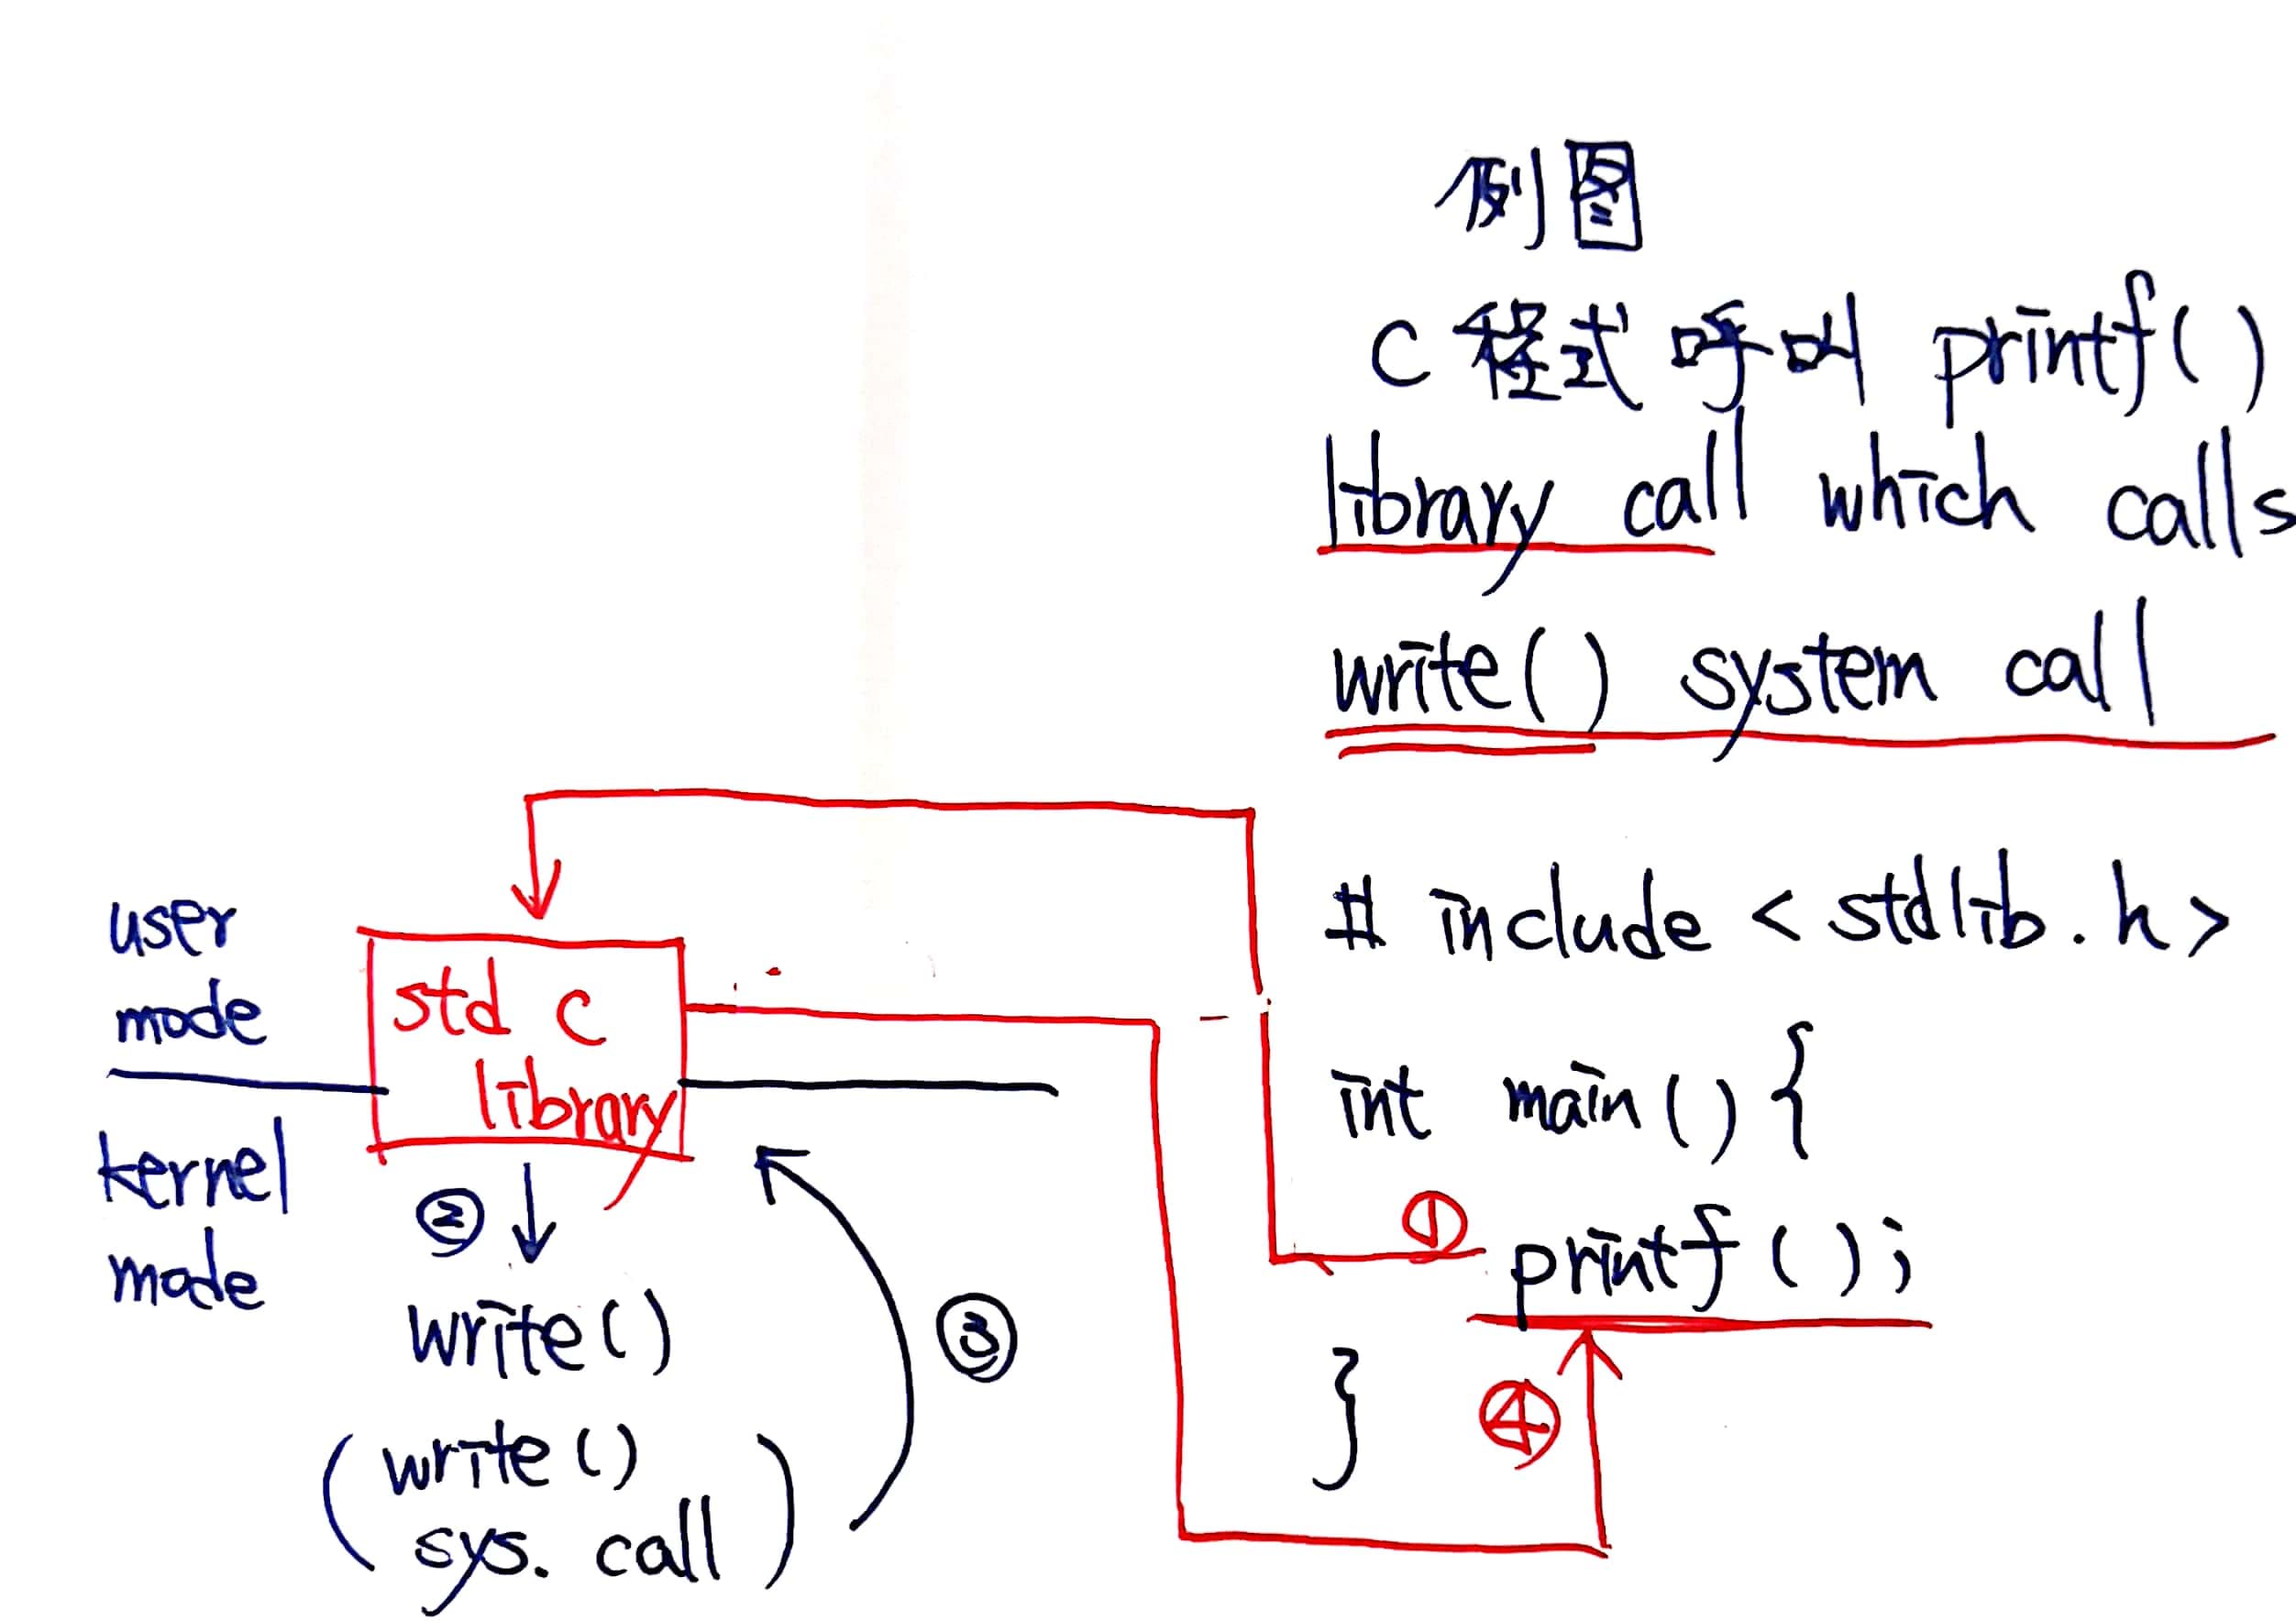 例图
C 程式呼叫 printf()
library call which calls
write() system call
# include < stdlib.h >
int main() {
① printf();
}
④
user
mode
std C
library
kernel
mode
②
write()
③
(write()
sys. call)